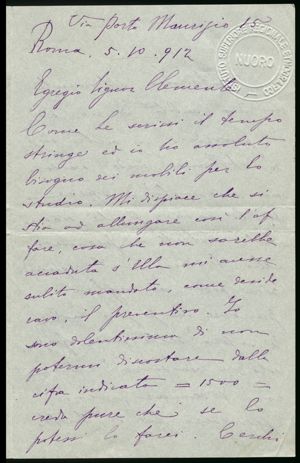 Via Porto Maurizio 15
Roma, 5.10.912
NUORO
Egregio Signor Clemente
Come Le scrissi il tempo
stringe ed io ho assoluto
bisogno dei mobili per lo
studio. Mi dispiace che si
stia ad allungare così l'af
fare, cosa che non sarebbe
accaduta s'Ella mi avesse
subito mandato, come deside
ravo, il preventivo. Io
sono dolentissimo di non
potermi discostare dalla
cifra indicata = 1500 =
creda pure che se lo
potessi lo farei. Cerchi